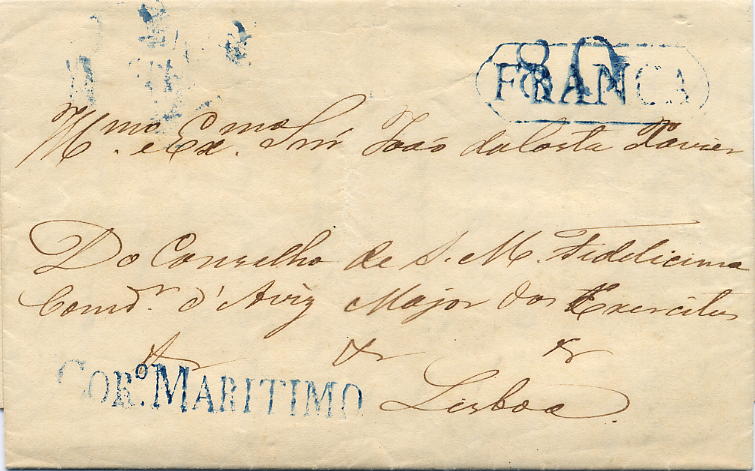 80
FRANCA
Mmo. e Exmo. Snr João da Costa Xavier
Do Conselho de S. M. Fidelicima
Comdr. d'Aviz Major dos Exercitos
&r &r &r
CORO. MARITIMO
Lisboa